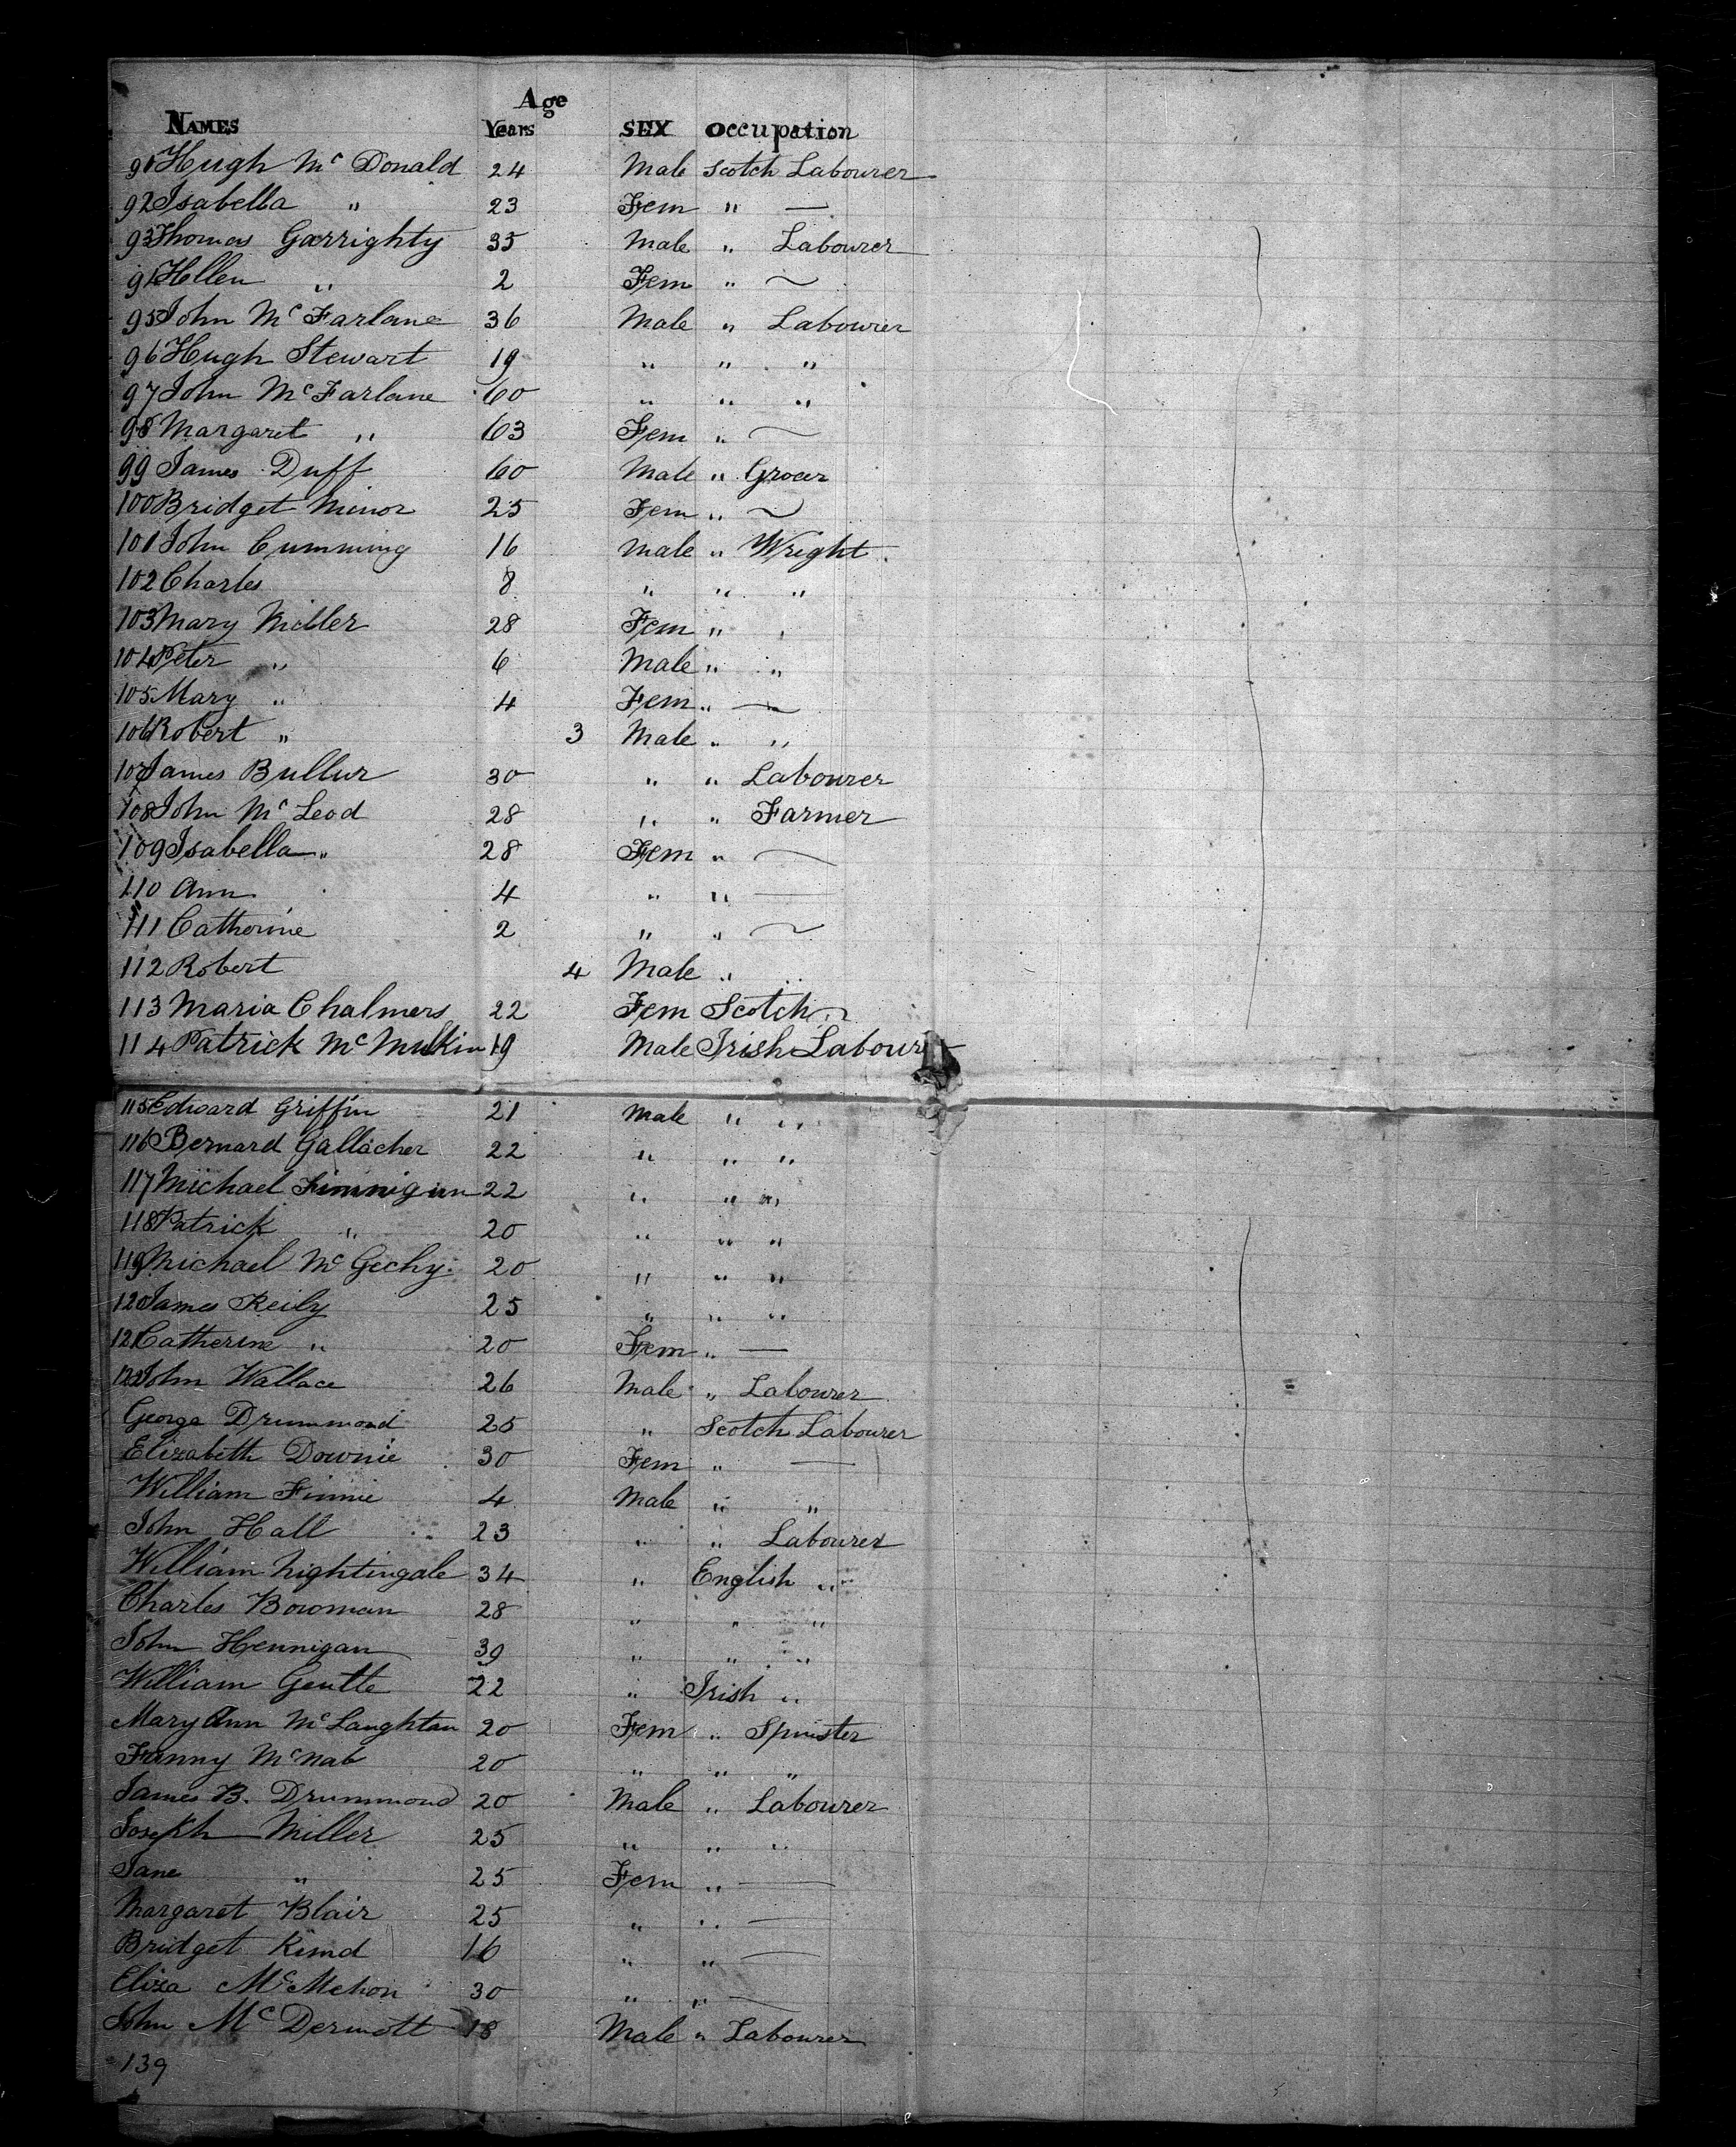 Age
NAMES Years SEX Occupation
91 Hugh Mc Donald 24 Male Scotch Labourer
92 Isabella " 23 Fem " —
93 Thomas Garrighty 35 Male " Labourer
94 Hellen " 2 Fem " ~
95 John Mc Farlane 36 Male " Labourer
96 Hugh Stewart 19 " " "
97 John Mc Farlane 60 " " "
98 Margaret " 63 Fem " ~
99 James Duff 60 Male " Grocer
100 Bridget Minor 25 Fem " ~
101 John Cumming 16 Male " Wright
102 Charles 8 " " "
103 Mary Miller 28 Fem " "
104 Peter " 6 Male " "
105 Mary " 4 Fem " —
106 Robert " 3 Male " "
107 James Bullur 30 " " Labourer
108 John Mc Leod 28 " " Farmer
109 Isabella " 28 Fem " ~
110 Ann 4 " " —
111 Catherine 2 " " ~
112 Robert 4 Male " "
113 Maria Chalmers 22 Fem Scotch "
114 Patrick Mc Mulkin 19 Male Irish Labourer
115 Edward Griffin 21 Male " "
116 Bernard Gallacher 22 " " "
117 Michael Finnigan 22 " " "
118 Patrick " 20 " " "
119 Michael Mc Gechy 20 " " "
120 James Reily 25 " " "
121 Catherine " 20 Fem " —
122 John Wallace 26 Male " Labourer
George Drummond 25 " Scotch Labourer
Elizabeth Downie 30 Fem " —
William Finnie 4 Male " "
John Hall 23 " " Labourer
William Nightingale 34 " English "
Charles Bowman 28 " " "
John Hennigan 39 " " "
William Gentle 22 " Irish "
Mary Ann Mc Laughtan 20 Fem " Spinster
Fanny McNab 20 " " "
James B. Drummond 20 Male " Labourer
Joseph Miller 25 " " "
Jane " 25 Fem " —
Margaret Blair 25 " " —
Bridget Kimd 16 " " —
Eliza McMehon 30 " " —
John McDermott 18 Male " Labourer
139